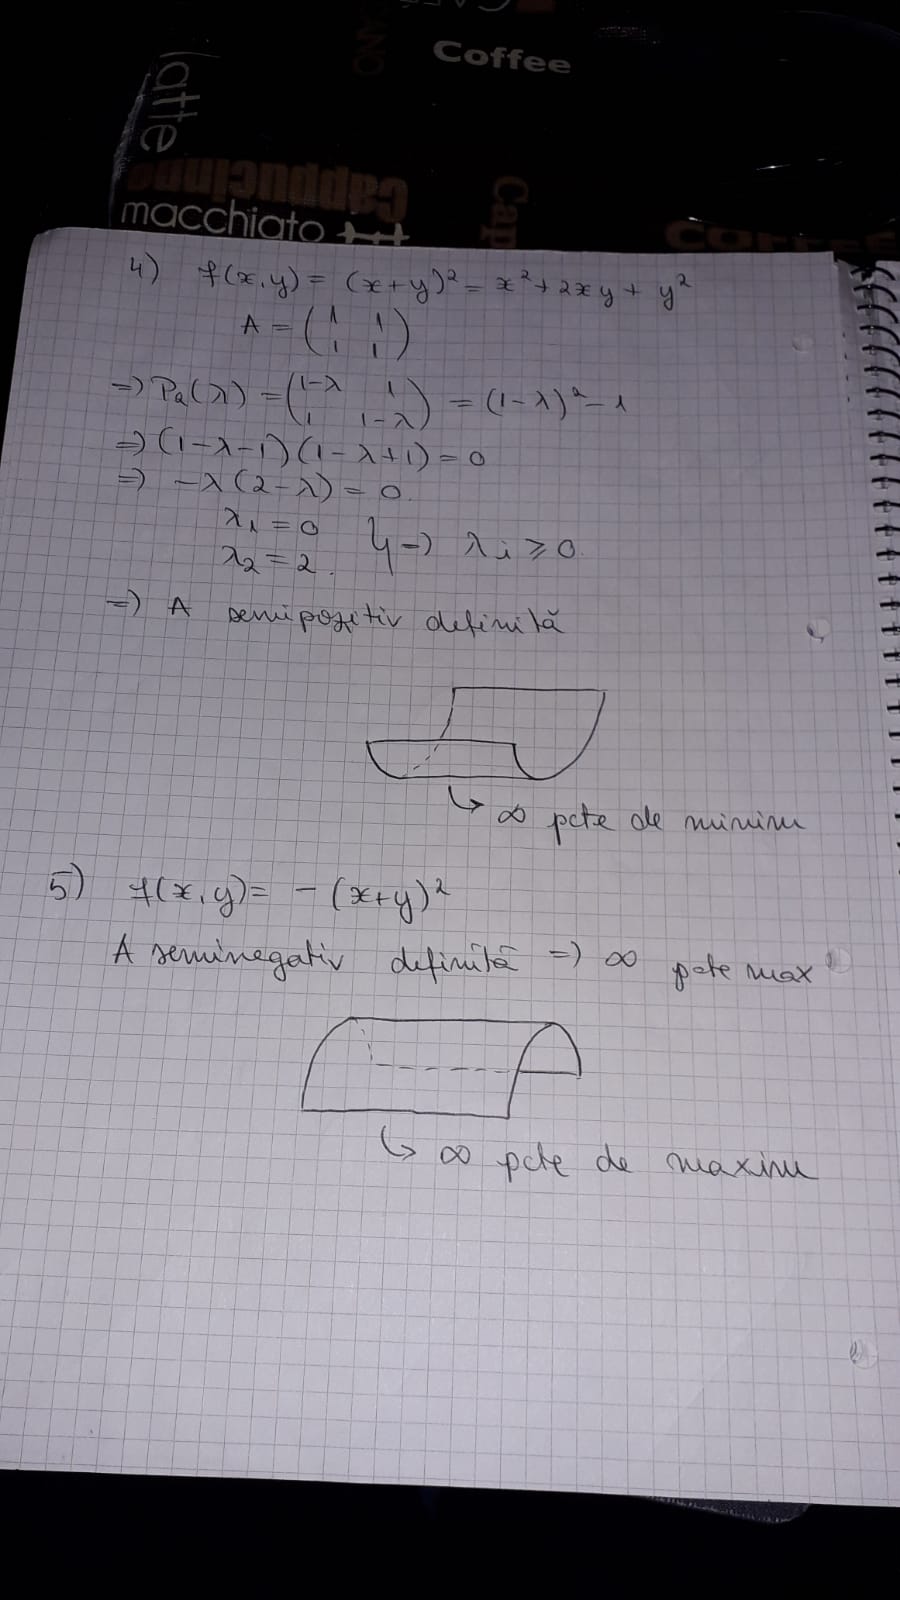 Coffee
latte
Cappuccino
macchiato
4) f(x,y) = (x+y)² = x² + 2xy + y²
A = (1 1
1 1)
=) Pa(λ) = (1-λ 1
1 1-λ) = (1-λ)² - 1
=) (1-λ-1)(1-λ+1) = 0
=) -λ(2-λ) = 0.
λ₁ = 0
λ₂ = 2. } =) λi ≥ 0.
=) A semipozitiv definită
↳ ∞ pcte de minim
5) f(x,y) = -(x+y)²
A seminegativ definită =) ∞ pcte max
↳ ∞ pcte de maxim